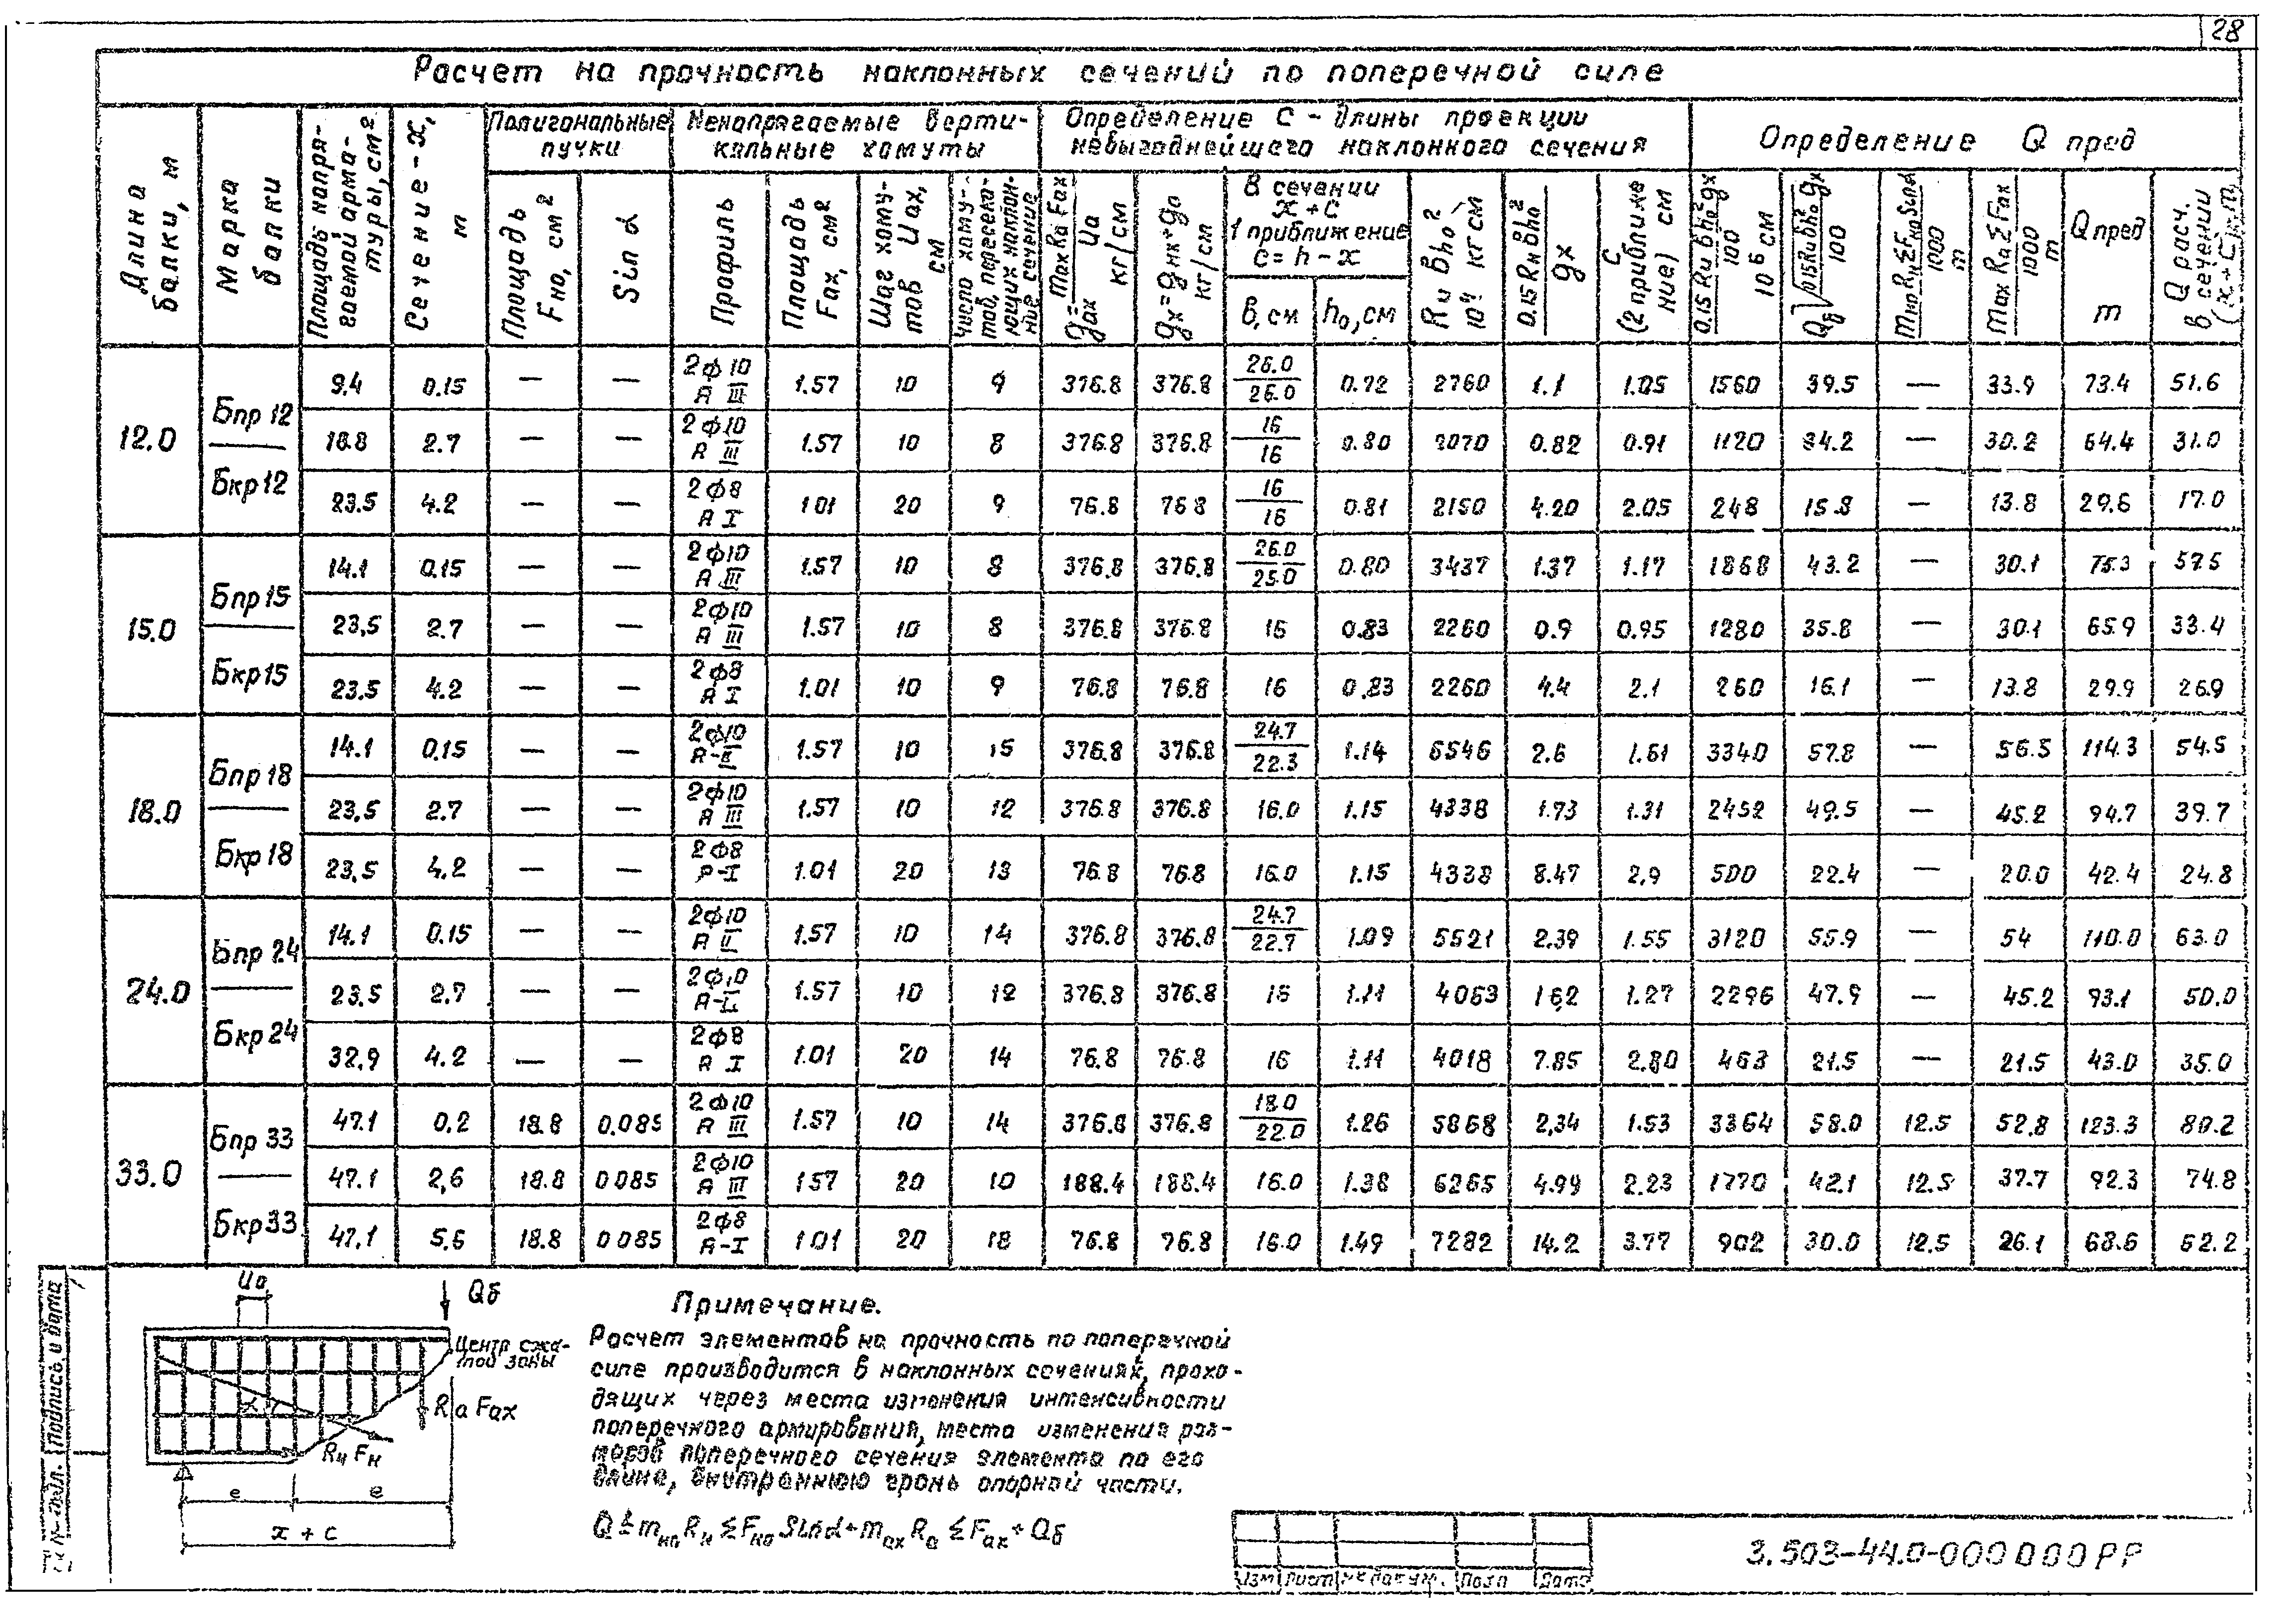 28
Расчет на прочность наклонных сечений по поперечной силе
Длина балки, м
Марка балки
Площадь напрягаемой арматуры, см²
Сечение - x, м
Полигональные пучки
Ненапрягаемые вертикальные хомуты
Определение С - длины проекции невыгоднейшего наклонного сечения
Определение Q пред
Площадь Fно, см²
Sin α
Профиль
Площадь Fах, см²
Шаг хомутов Uах, см
Число хомутов, пересекающих наклонное сечение
gах = mах Rа Fах / Uа кг/см
gх = gнк + gо кг/см
В сечении x + c 1 приближение c = h - x
в, см
h₀, см
Rи вh₀² 10⁴ кг см
0.15 Rи вh₀² / gх
С (2 приближение) см
0.15 Rи вh₀² gх / 100 10⁶ см
Qб √0.15 Rи вh₀² gх / 100
mно Rн ΣFно Sinα / 1000 т
mах Rа ΣFах / 1000 т
Q пред т
Q расч. в сечении (x + C), т
12.0 Бпр 12 Бкр 12
9,4 0.15 — — 2ф10 А III 1.57 10 9 376.8 376.8 26.0/26.0 0.72 2760 1.1 1.05 1560 39.5 — 33.9 73.4 51.6
18.8 2.7 — — 2ф10 А III 1.57 10 8 376.8 376.8 16/16 0.80 2070 0.82 0.91 1120 34.2 — 30.2 64.4 31.0
23.5 4.2 — — 2ф8 А I 1 01 20 9 76.8 76 8 16/16 0.81 2150 4.20 2.05 248 15.8 — 13.8 29.6 17.0
15.0 Бпр 15 Бкр 15
14.1 0.15 — — 2ф10 А III 1.57 10 8 376.8 376.8 26.0/25.0 0.80 3437 1.37 1.17 1868 43.2 — 30.1 75.3 57.5
23,5 2.7 — — 2ф10 А III 1.57 10 8 376.8 376.8 16 0.83 2260 0.9 0.95 1280 35.8 — 30.1 65.9 33.4
23.5 4.2 — — 2ф8 А I 1.01 10 9 76.8 76.8 16 0.83 2260 4.4 2.1 260 16.1 — 13.8 29.9 26.9
18.0 Бпр 18 Бкр 18
14.1 0.15 — — 2ф10 А-II 1.57 10 15 376.8 376.8 24.7/22.3 1.14 6546 2.6 1.61 3340 57.8 — 56.5 114.3 54.5
23,5 2.7 — — 2ф10 А III 1.57 10 12 376.8 376.8 16.0 1.15 4338 1.73 1.31 2452 49.5 — 45.2 94.7 39.7
23,5 4,2 — — 2ф8 А-I 1.01 20 13 76.8 76.8 16.0 1.15 4338 8.47 2,9 500 22.4 — 20.0 42.4 24.8
24.0 Бпр 24 Бкр 24
14.1 0.15 — — 2ф10 А II 1.57 10 14 376.8 376.8 24.7/22.7 1.09 5521 2.39 1.55 3120 55.9 — 54 110.0 63.0
23,5 2.7 — — 2ф10 А-II 1.57 10 12 376.8 376.8 16 1.11 4063 1 6,2 1.27 2296 47.9 — 45.2 93.1 50.0
32,9 4.2 — — 2ф8 А I 1.01 20 14 76.8 76.8 16 1.11 4018 7.85 2.80 463 21.5 — 21.5 43.0 35.0
33.0 Бпр 33 Бкр 33
47.1 0.2 18.8 0.085 2ф10 А III 1.57 10 14 376.8 376.8 18.0/22.0 1.26 5868 2,34 1.53 3364 58.0 12.5 52.8 123.3 80.2
47.1 2,6 18.8 0 085 2ф10 А III 1 57 20 10 188.4 188.4 16.0 1.38 6265 4.99 2.23 1770 42.1 12.5 37.7 92.3 74.8
47.1 5.6 18.8 0 085 2ф8 А-I 1 01 20 18 76.8 76.8 16.0 1.49 7282 14.2 3.77 902 30.0 12.5 26.1 68.6 62.2
Uа
Qб
Центр сжатой зоны
α
Rа Fах
Rн Fн
е е
x + c
Примечание.
Расчет элементов на прочность по поперечной
силе производится в наклонных сечениях, прохо-
дящих через места изменения интенсивности
поперечного армирования, места изменения раз-
меров поперечного сечения элемента по его
длине, внутреннюю грань опорной части.
Q ≤ mно Rн ΣFно Sinα + mах Rа ΣFах + Qб
Изм Лист № докум. Подп Дата
3.503-44.0-000000РР
Подпись и дата